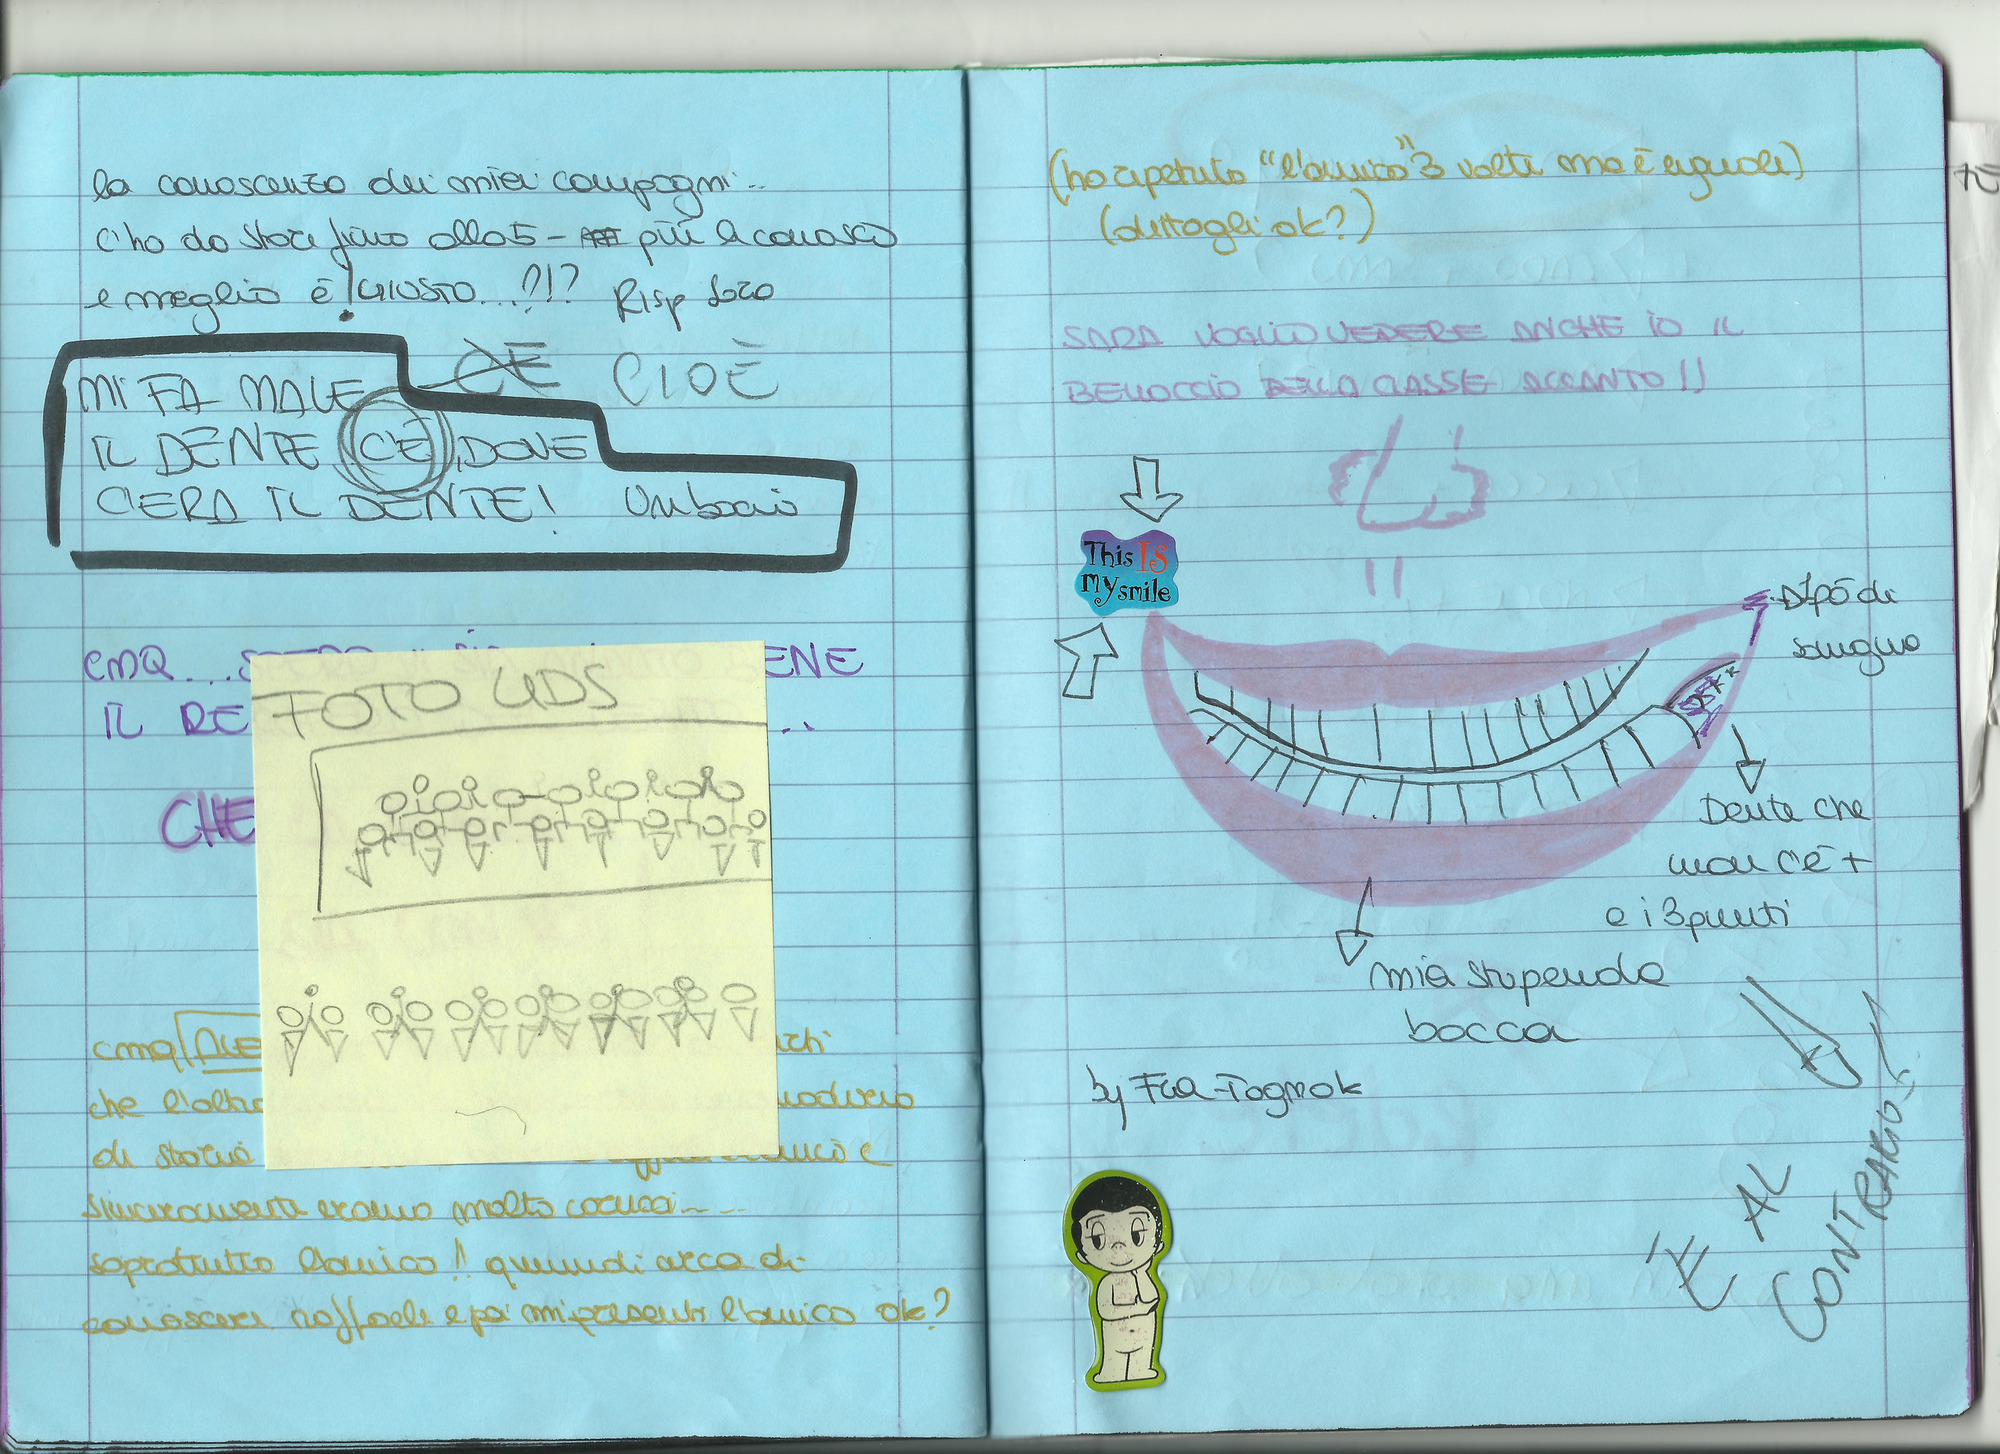 la conoscenza dei miei compagni..
C'ho da stare fino alla 5- più li conosco
e meglio è! GIUSTO...?!? Risp loro
CE CIOÈ
MI FA MALE
IL DENTE, C'È, DOVE
C'ERA IL DENTE! Un bacio
CMQ... ENE
IL RE ..
CHE
FOTO UDS
cmq
che l'altro
di storia
sinceramente erano molto carucci....
soprattutto l'amico!! quindi cerca di
conoscere raffaele e poi mi presenti l'amico ok?
(ho ripetuto "l'amico" 3 volte ma è uguale)
(dettagli ok?)
SARA VOGLIO VEDERE ANCHE IO IL
BELLOCCIO DELLA CLASSE ACCANTO!!
This IS
my smile
di
sangue
Dente che
non c'è +
e i 3 punti
mia stupenda
bocca
by Fra-Tognok
È AL
CONTRARIO